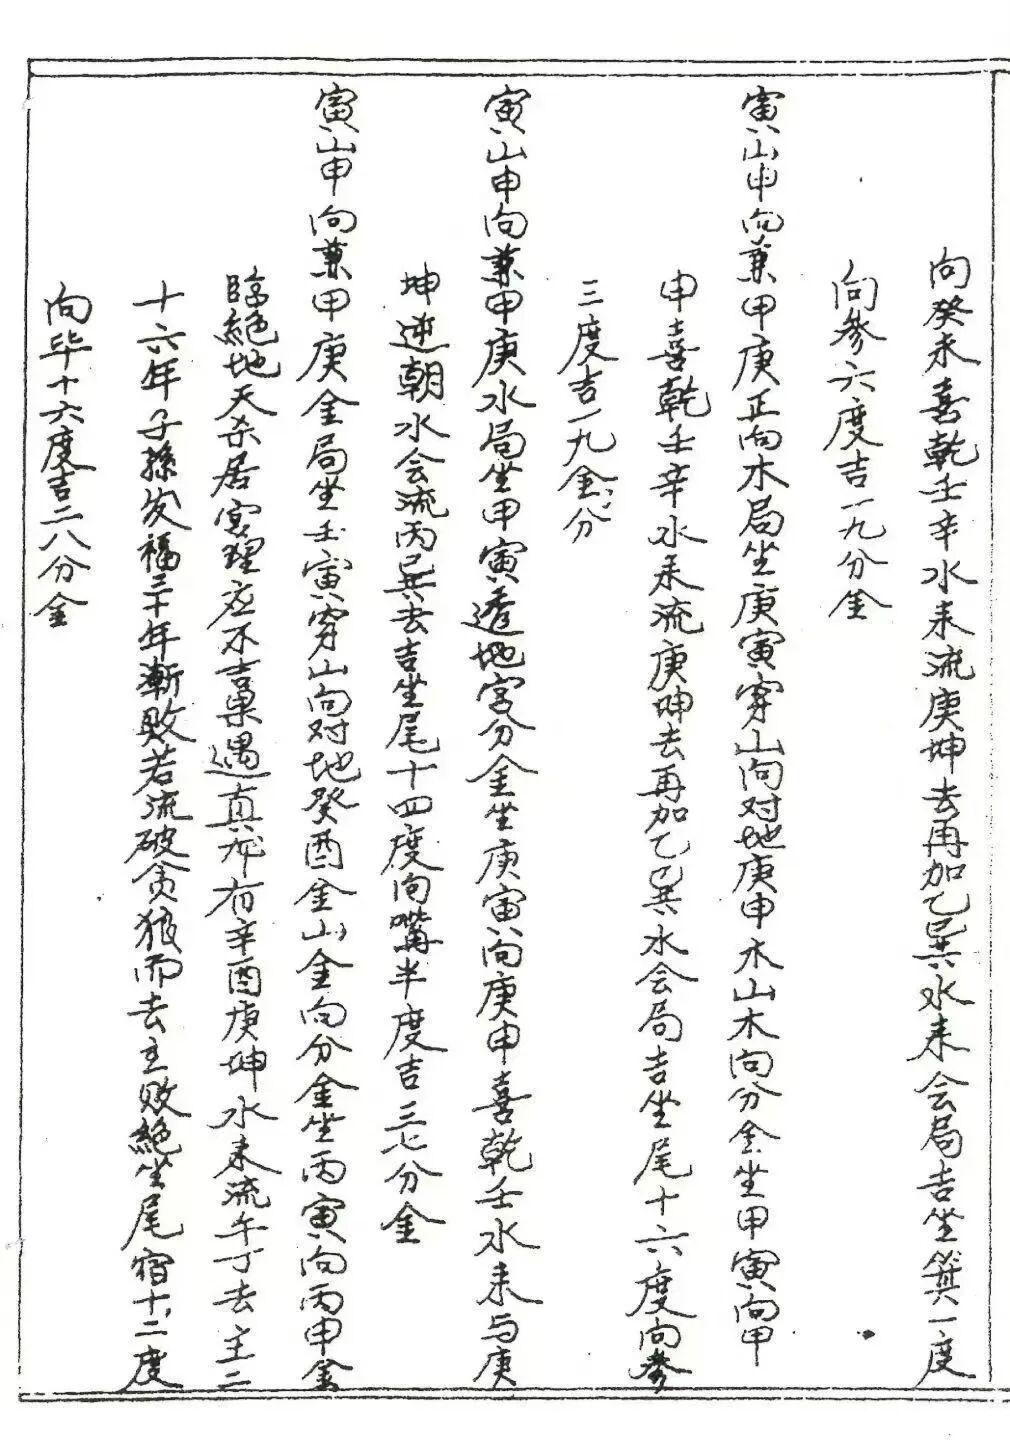 向癸未喜乾壬辛水来流庚坤去再加乙巽水来会局吉坐箕一度
向参六度吉一九分金
寅山申向兼甲庚正向木局坐庚寅穿山向对地庚申木山木向分金坐甲寅向甲
申喜乾壬辛水来流庚坤去再加乙巽水会局吉坐尾十六度向参
三度吉一九金分
寅山申向兼甲庚水局坐甲寅透地宫分金坐庚寅向庚申喜乾壬水来与庚
坤逆朝水会流丙巽去吉坐尾十四度向嘴半度吉三七分金
寅山申向兼甲庚金局坐壬寅穿山向对地癸酉金山金向分金坐丙寅向丙申金
臨絕地天杀居寅理应不吉菓遇真龙有辛酉庚坤水来流午丁去主二
十六年子孫发福三十年漸败若流破贪狼而去主败絕坐尾宿十二度
向毕十六度吉二八分金